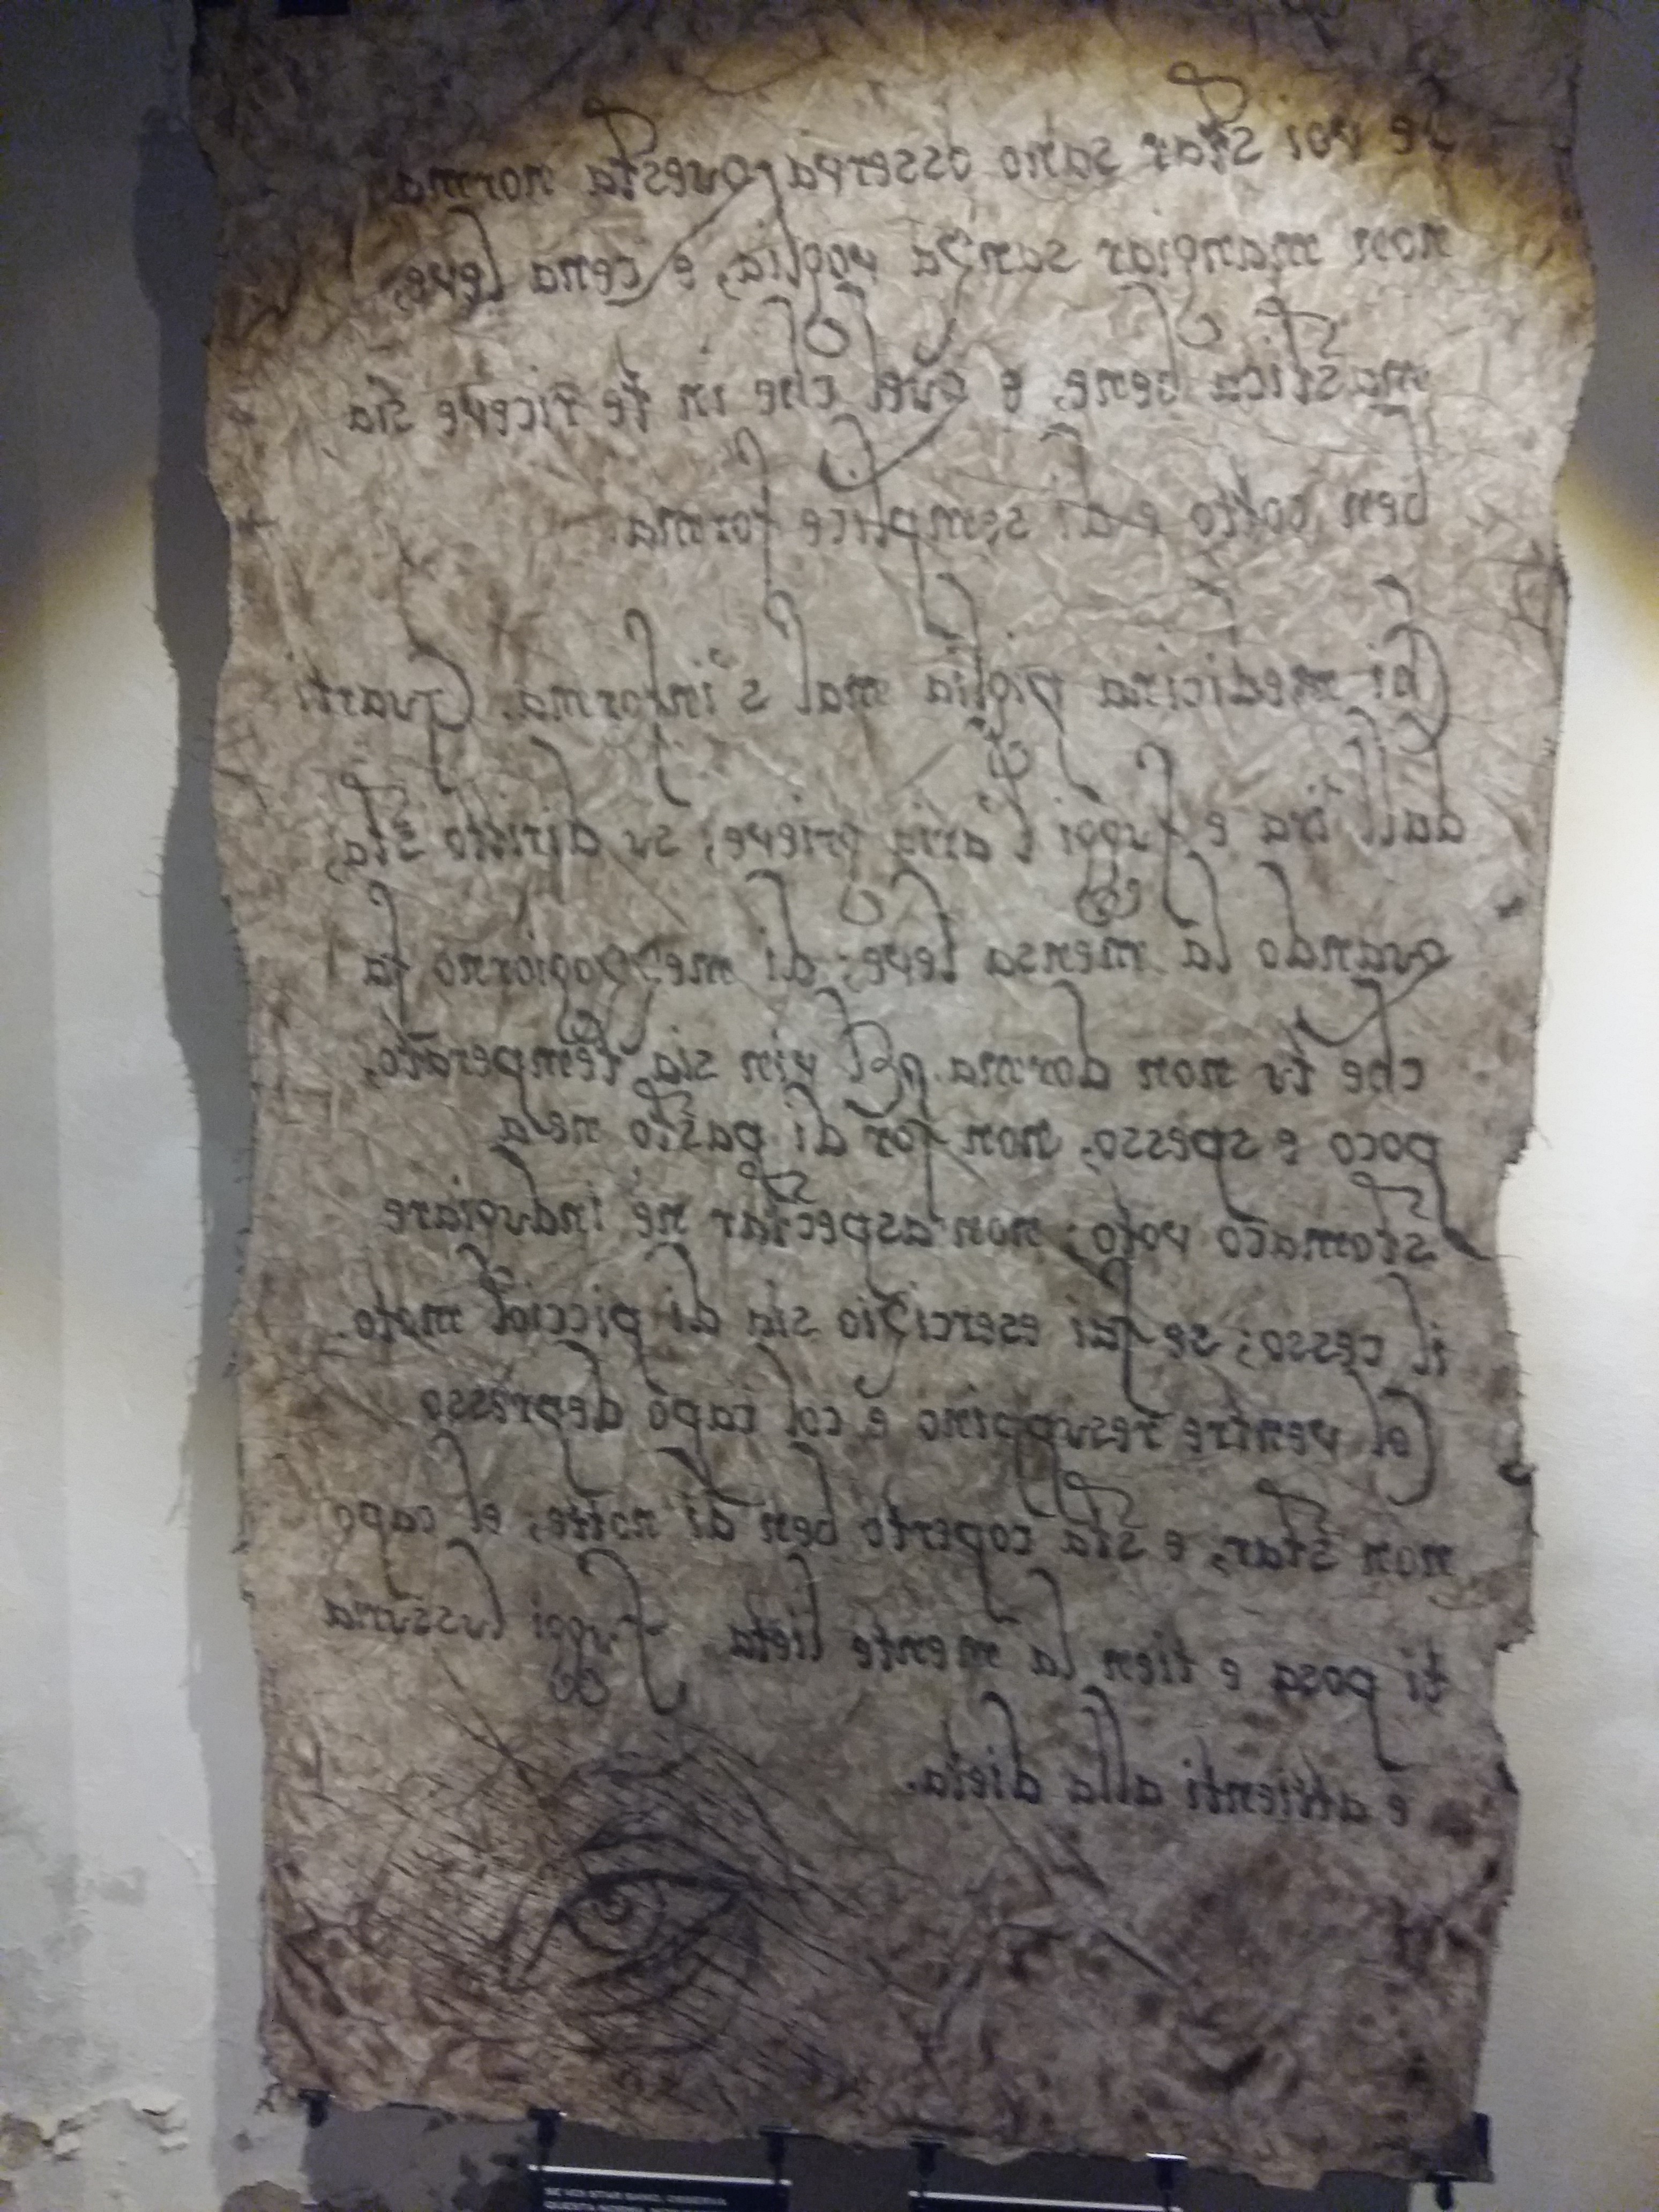 Se voi star sano osserva questa norma:
non mangiar sanza voglia, e cena leve,
mastica bene, e quel che in te riceve sia
ben cotto e di semplice forma.
Chi medicina piglia mal s'informa. Guarti
dall'ira e fuggi l'aria grieve; su diritto sta,
quando la mensa leve; di mezzogiorno fa
che tu non dorma. El vin sia temperato,
poco e spesso, non for di pasto né a
stomaco voto; non aspectar né indugiare
il cesso; se fai esercizio sia di picciol moto.
Col ventre resuppino e col capo depresso
non star, e sta coperto ben di notte; el capo
ti posa e tien la mente lieta. Fuggi lussuria
e attienti alla dieta.
SE VOI STAR SANO, OSSERVA
QUESTA NORMA